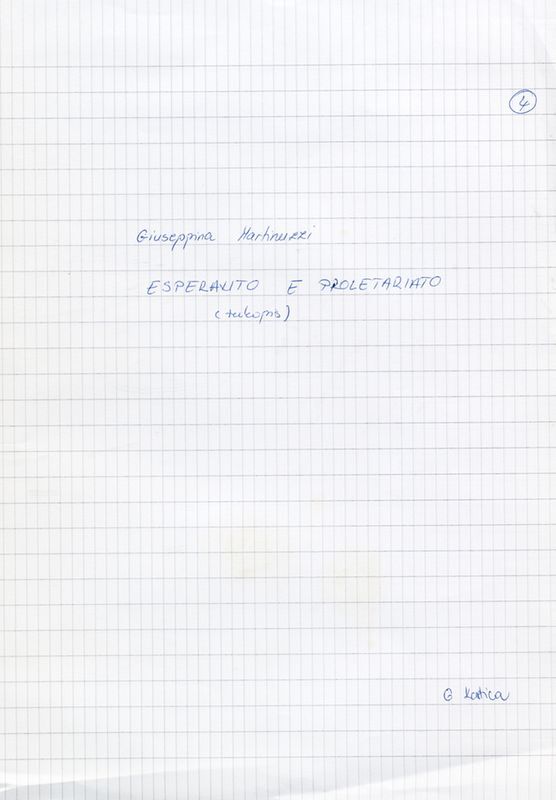 4
Giuseppina Martinuzzi
ESPERANTO E PROLETARIATO
(rukopis)
G Katica